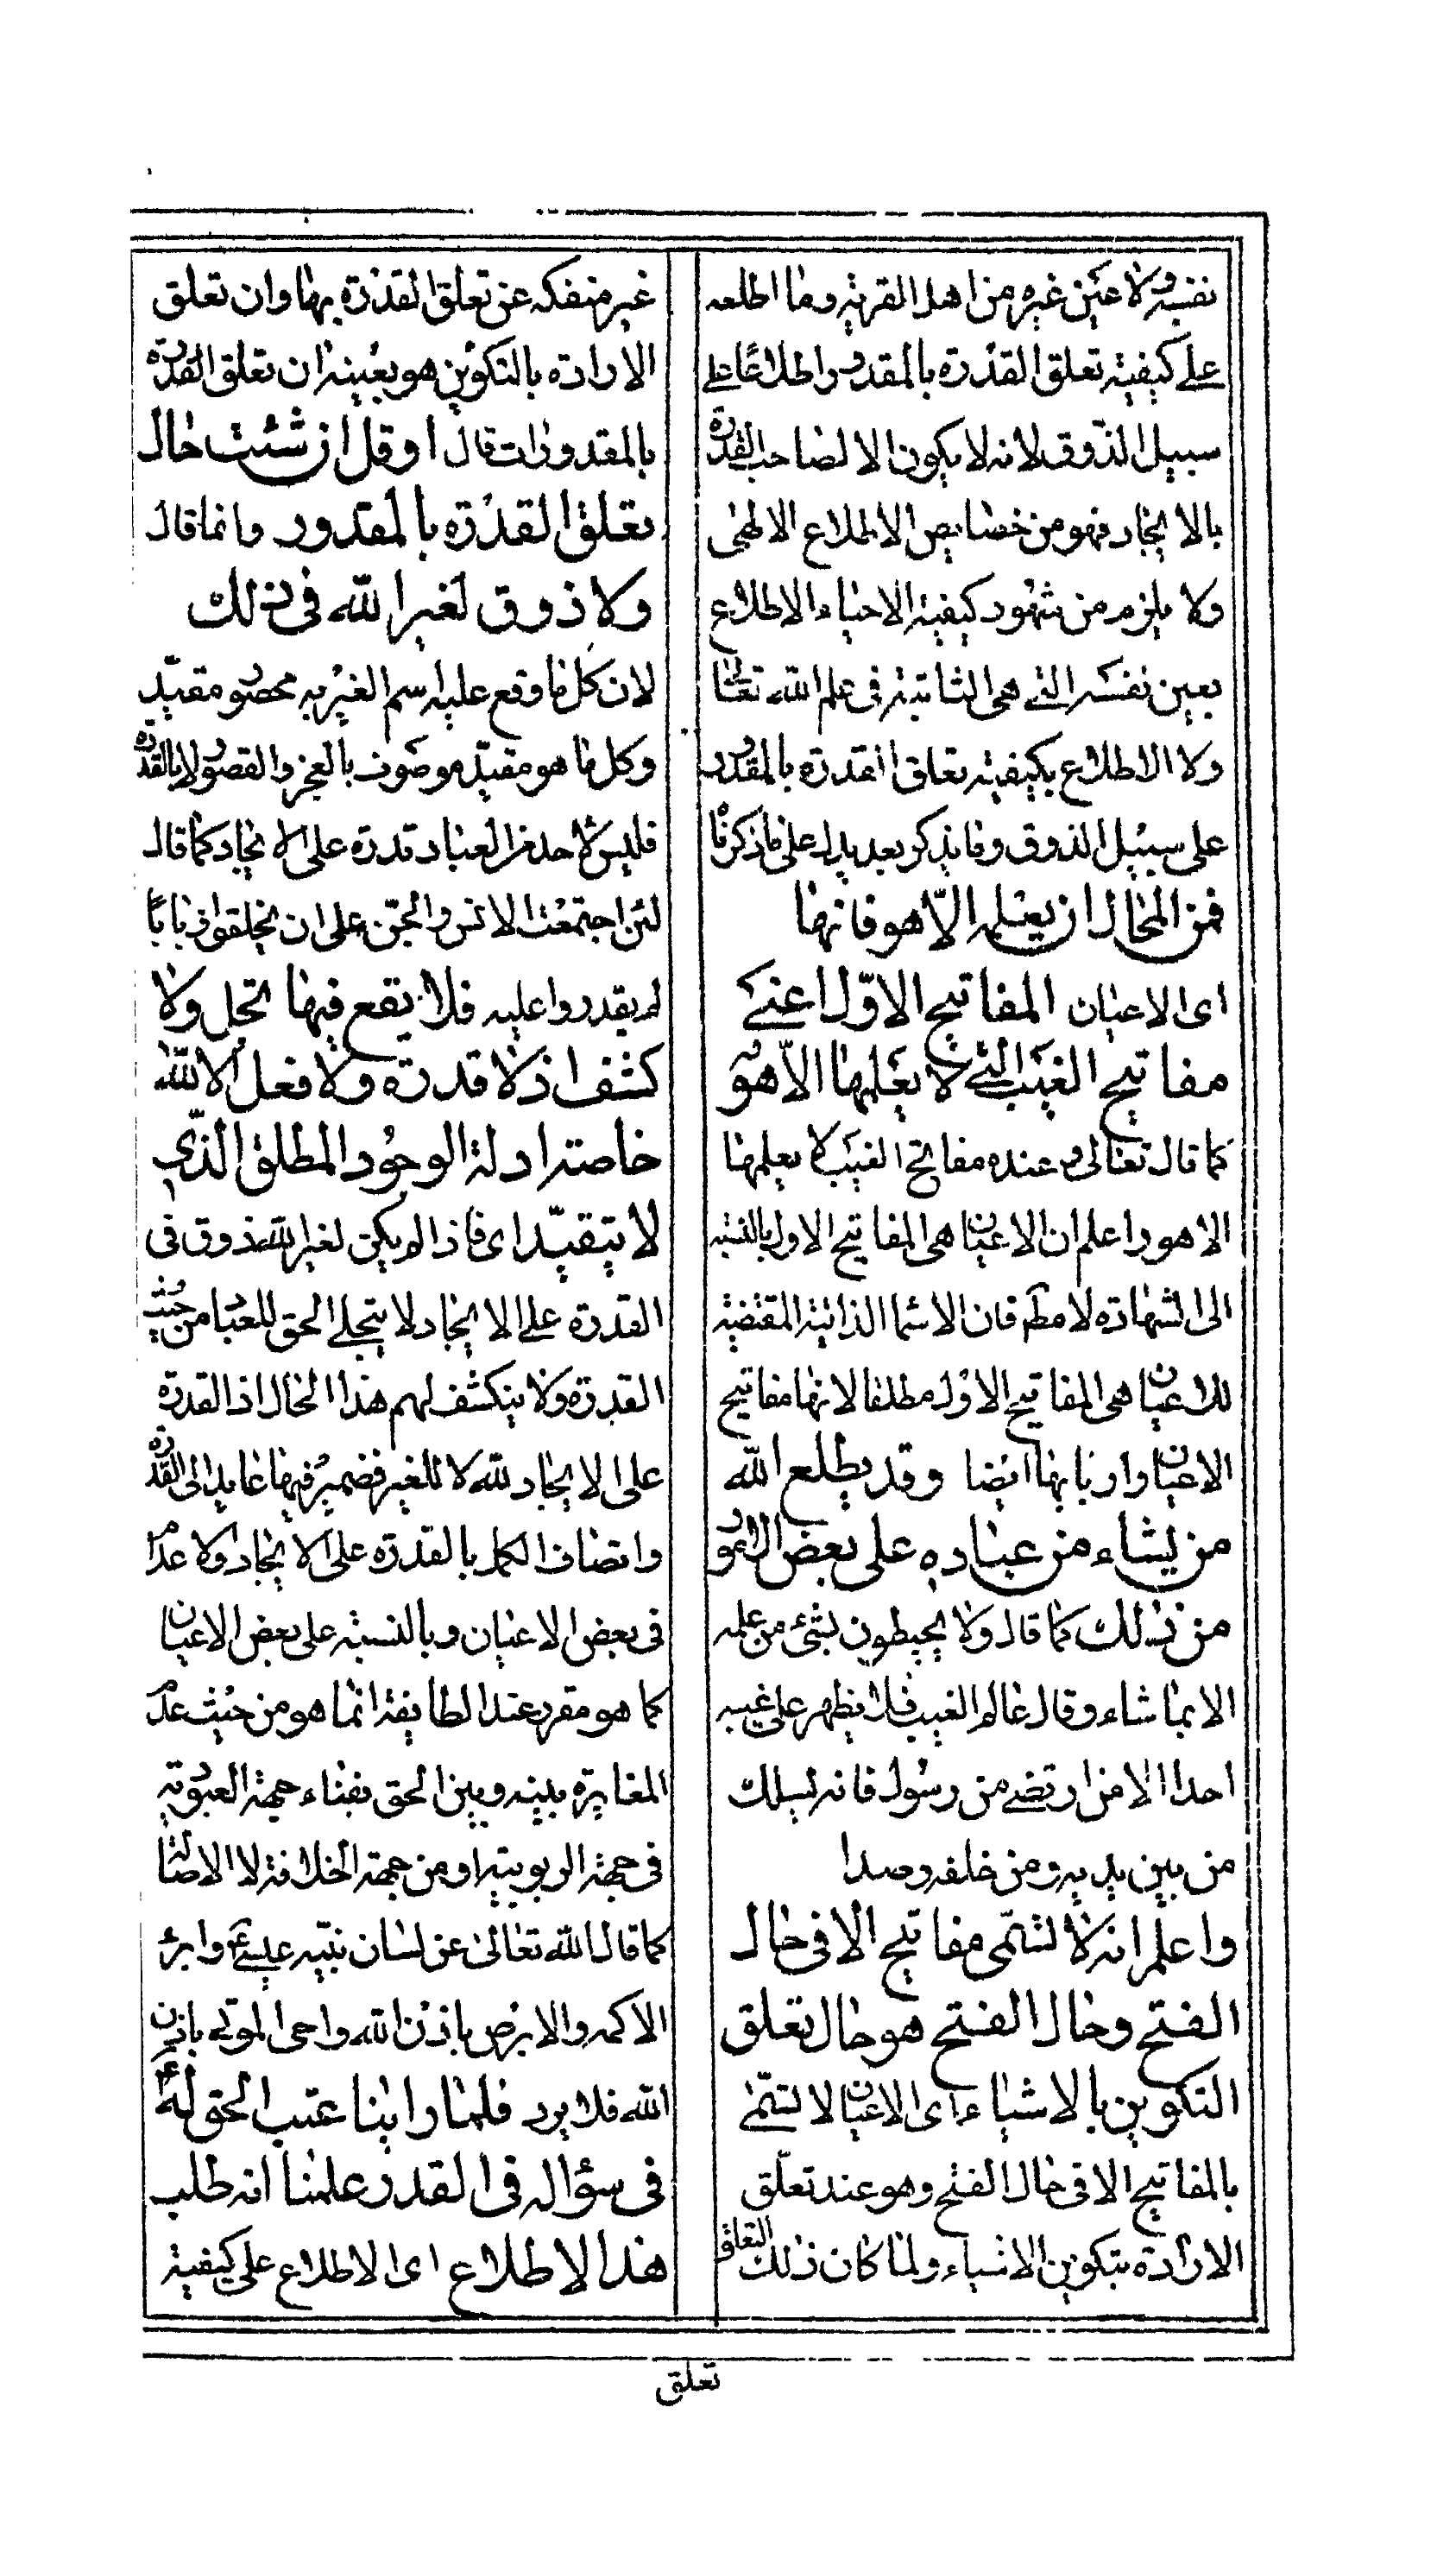 نفسه ولا عين غيره من اهل القربة وما اطلعه
على كيفية تعلق القدرة بالمقدور اطلاعا على
سبيل الذوق لانه لا يكون الا لصاحب القدرة
بالايجاد فهو من خصايص الاطلاع الالهى
ولا يلزم من شهود كيفية الاحياء الاطلاع
بعين نفسه التى هى الثابتة فى علم الله تعالى
ولا الاطلاع بكيفية تعلق القدرة بالمقدور
على سبيل الذوق وما يذكر بعد يدل على ما ذكرنا
فمن المحال ان يعلمه الّا هو فانها
اى الاعيان المفاتيح الاوّل اعنى
مفاتيح الغيب التى لا يعلمها الّا هو
كما قال تعالى وعنده مفاتح الغيب لا يعلمها
الا هو واعلم ان الاعيان هى المفاتيح الاول بالنسبة
الى الشهادة لا مطلقا فان الاسما الذاتية المقتضية
للاعيان هى المفاتيح الاول مطلقا لانها مفاتيح
الاعيان واربابها ايضا وقد يطلع الله
من يشاء من عباده على بعض الامور
من ذلك كما قال ولا يحيطون بشئ من علمه
الا بما شاء وقال عالم الغيب فلا يظهر على غيبه
احدا الا من ارتضى من رسول فانه يسلك
من بين يديه ومن خلفه رصدا
واعلم انه لا تسمّى مفاتيح الا فى حال
الفتح وحال الفتح هو حال تعلق
التكوين بالاشياء اى الاعيان لا تسمّى
بالمفاتيح الا فى حال الفتح وهو عند تعلّق
الارادة بتكوين الاشياء ولما كان ذلك التعلق
غير منفكه عن تعلق القدرة بها وان تعلق
الارادة بالتكوين هو بعينه ان تعلق القدرة
بالمقدورات قال او قل ان شئت حال
تعلق القدرة بالمقدور وانما قال
ولا ذوق لغير الله فى ذلك
لان كل ما وقع عليه اسم الغيرية محصور مقيّد
وكل ما هو مقيّد موصوف بالعجز والقصور لا بالقدرة
فليس لاحد من العباد قدرة على الايجاد كما قال
لئن اجتمعت الانس والجن على ان يخلقوا ذبابا
لم يقدروا عليه فلا يقع فيها تجل ولا
كشف اذ لا قدرة ولا فعل الا لله
خاصة اذ له الوجود المطلق الذى
لا يتقيّد اى فاذا لم يكن لغير الله ذوق فى
القدرة على الايجاد لا يتجلى الحق للعباد من حيث
القدرة ولا ينكشف لهم هذا الحال اذ القدرة
على الايجاد لله لا للغير فضمير فيها عايد الى القدرة
واتصاف الكمل بالقدرة على الايجاد والاعدام
فى بعض الاعيان وبالنسبة على بعض الاعيان
كما هو مقرر عند الطايفة انما هو من حيث عدم
المغايرة بينه وبين الحق بفناء جهة العبودية
فى جهة الربوبية او من جهة الخلافة لا الاصالة
كما قال الله تعالى عن لسان نبيه عيسى ع وابرئ
الاكمه والابرص باذن الله واحى الموتى باذن
الله فلا يرد فلما راينا عتب الحق له ع
فى سؤاله فى القدر علمنا انه طلب
هذا الاطلاع اى الاطلاع على كيفية
تعلق